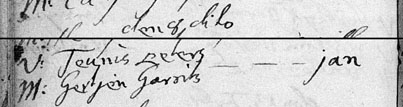 den 8, dito
V: Teunis Peters — — — jan
M: Gertjen Garrits